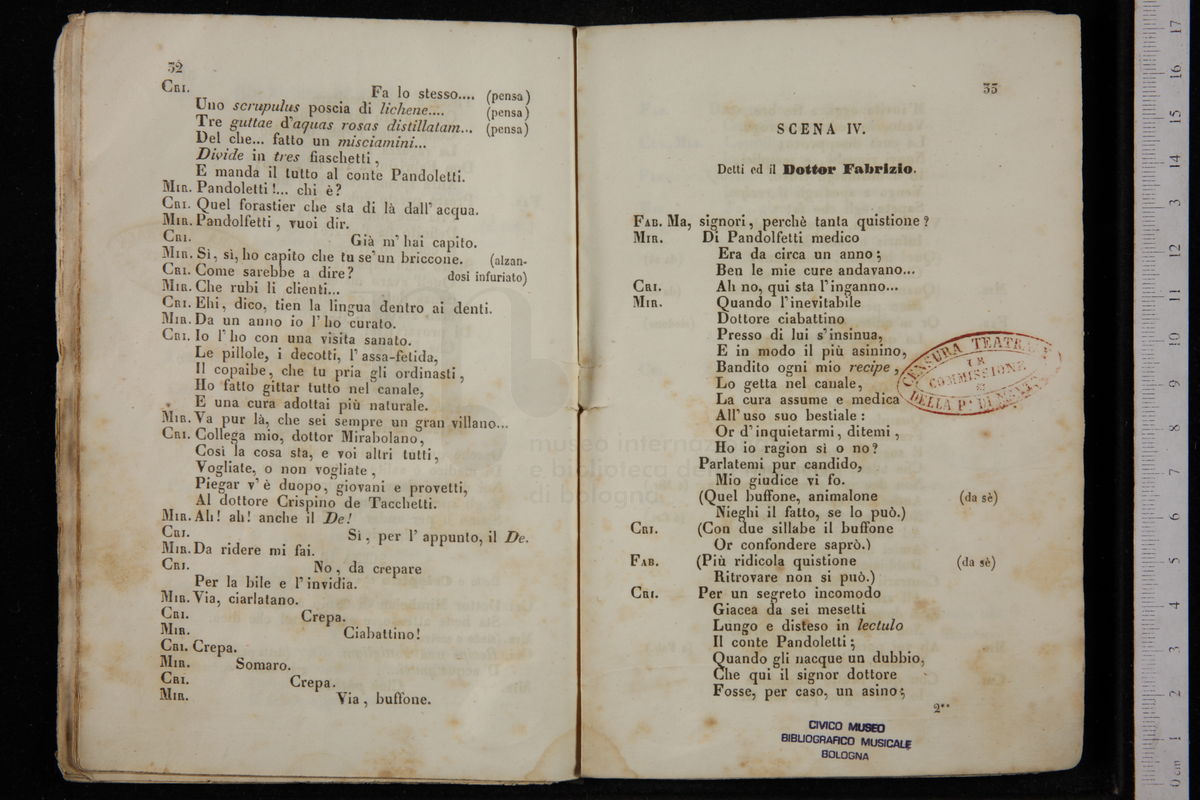 32
CRI. Fa lo stesso.... (pensa)
Uno scrupulus poscia di lichene.... (pensa)
Tre guttae d'aquas rosas distillatam... (pensa)
Del che... fatto un misciamini...
Divide in tres fiaschetti,
E manda il tutto al conte Pandoletti.
MIR. Pandoletti!... chi è?
CRI. Quel forastier che sta di là dall' acqua.
MIR. Pandolfetti, vuoi dir.
CRI. Già m' hai capito.
MIR. Sì, sì, ho capito che tu se' un briccone. (alzan-
CRI. Come sarebbe a dire? dosi infuriato)
MIR. Che rubi li clienti...
CRI. Ehi, dico, tien la lingua dentro ai denti.
MIR. Da un anno io l' ho curato.
CRI. Io l' ho con una visita sanato.
Le pillole, i decotti, l' assa-fetida,
Il copaibe, che tu pria gli ordinasti,
Ho fatto gittar tutto nel canale,
E una cura adottai più naturale.
MIR. Va pur là, che sei sempre un gran villano...
CRI. Collega mio, dottor Mirabolano,
Così la cosa sta, e voi altri tutti,
Vogliate, o non vogliate,
Piegar v' è duopo, giovani e provetti,
Al dottore Crispino de Tacchetti.
MIR. Ah! ah! anche il De!
CRI. Sì, per l' appunto, il De.
MIR. Da ridere mi fai.
CRI. No, da crepare
Per la bile e l' invidia.
MIR. Via, ciarlatano.
CRI. Crepa.
MIR. Ciabattino!
CRI. Crepa.
MIR. Somaro.
CRI. Crepa.
MIR. Via, buffone.
33
SCENA IV.
Detti ed il Dottor Fabrizio.
FAB. Ma, signori, perchè tanta quistione?
MIR. Di Pandolfetti medico
Era da circa un anno;
Ben le mie cure andavano...
CRI. Ah no, qui sta l' inganno...
MIR. Quando l' inevitabile
Dottore ciabattino
Presso di lui s' insinua,
E in modo il più asinino,
Bandito ogni mio recipe,
Lo getta nel canale,
La cura assume e medica
All' uso suo bestiale:
Or d' inquietarmi, ditemi,
Ho io ragion sì o no?
Parlatemi pur candido,
Mio giudice vi fo.
(Quel buffone, animalone (da sè)
Nieghi il fatto, se lo può.)
CRI. (Con due sillabe il buffone
Or confondere saprò.)
FAB. (Più ridicola quistione (da sè)
Ritrovare non si può.)
CRI. Per un segreto incomodo
Giacea da sei mesetti
Lungo e disteso in lectulo
Il conte Pandoletti;
Quando gli nacque un dubbio,
Che qui il signor dottore
Fosse, per caso, un asino;
2**
CENSURA TEATRALE
COMMISSIONE
DELLA P.ª DI
CIVICO MUSEO
BIBLIOGRAFICO MUSICALE
BOLOGNA
museo internaz
e biblioteca de
di bologna
0 cm 1 2 3 4 5 6 7 8 9 10 11 12 13 14 15 16 17